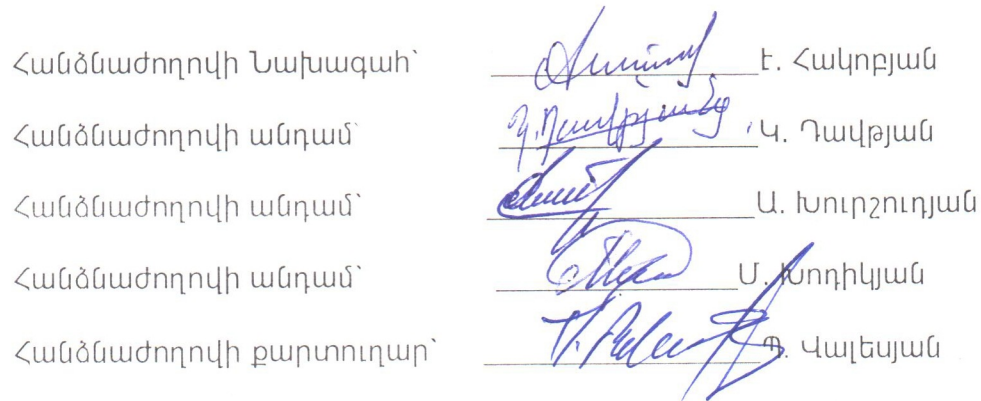 Հանձնաժողովի Նախագահ՝ է. Հակոբյան
Հանձնաժողովի անդամ՝ Կ. Դավթյան
Հանձնաժողովի անդամ՝ Ա. Խուրշուդյան
Հանձնաժողովի անդամ՝ Մ. Խոդիկյան
Հանձնաժողովի քարտուղար՝ Պ. Վալեսյան